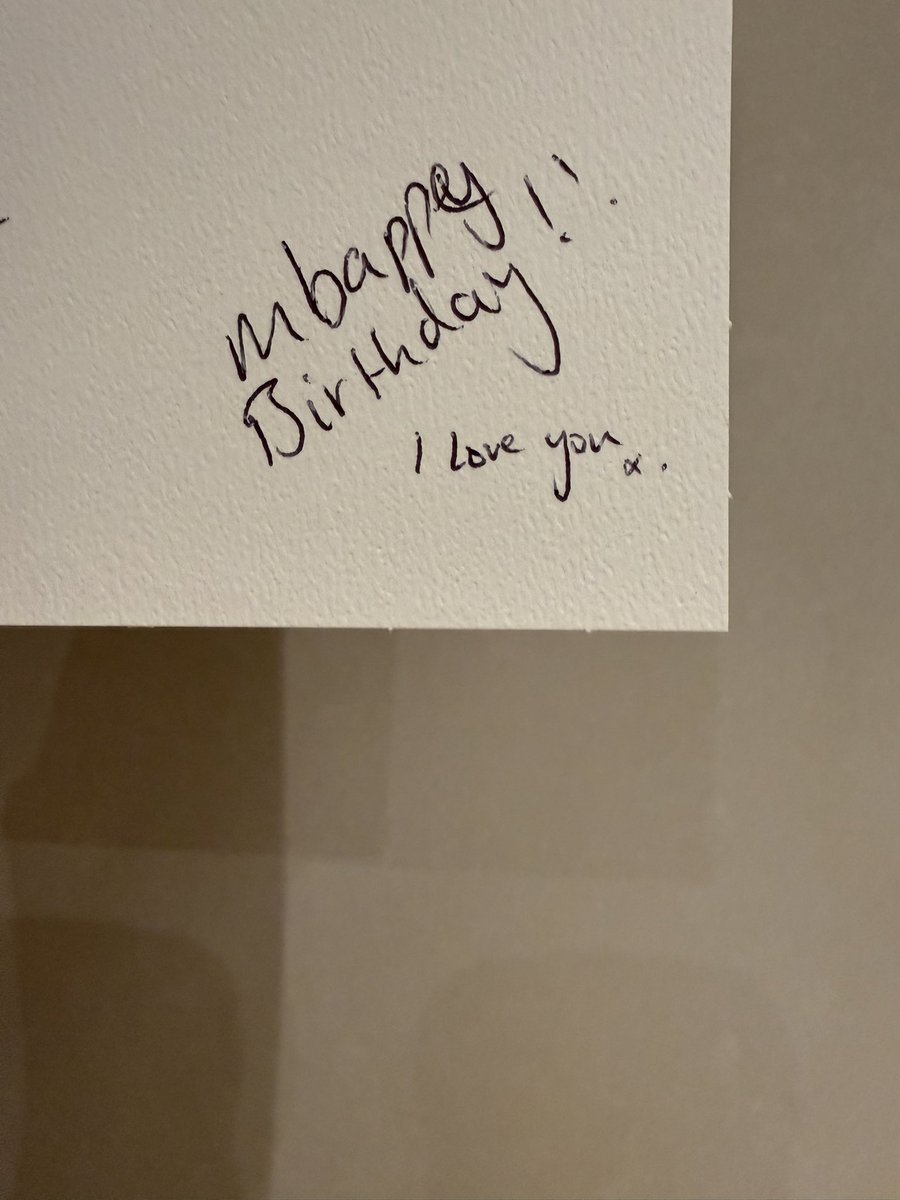 mbappey !!
Birthday
I love you x.